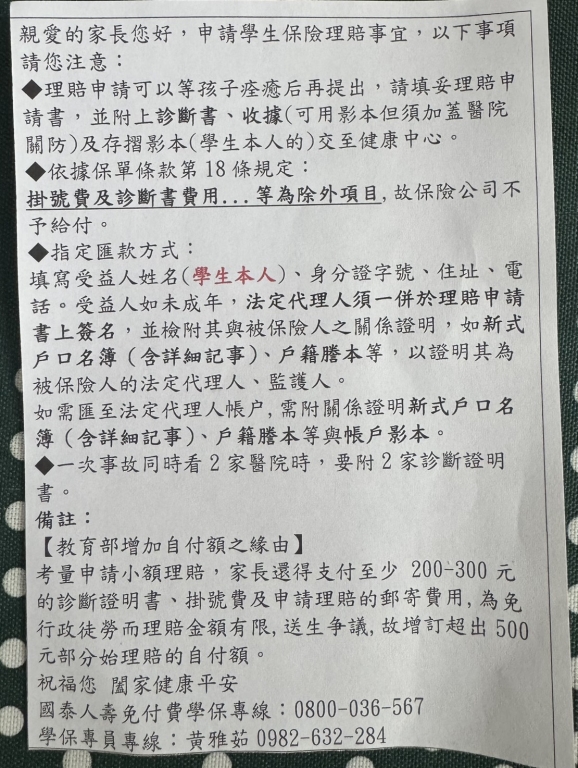 親愛的家長您好，申請學生保險理賠事宜，以下事項
請您注意：
◆理賠申請可以等孩子痊癒后再提出，請填妥理賠申
請書，並附上診斷書、收據(可用影本但須加蓋醫院
關防)及存摺影本(學生本人的)交至健康中心。
◆依據保單條款第 18 條規定：
掛號費及診斷書費用...等為除外項目,故保險公司不
予給付。
◆指定匯款方式：
填寫受益人姓名(學生本人)、身分證字號、住址、電
話。受益人如未成年，法定代理人須一併於理賠申請
書上簽名，並檢附其與被保險人之關係證明，如新式
戶口名簿（含詳細記事）、戶籍謄本等，以證明其為
被保險人的法定代理人、監護人。
如需匯至法定代理人帳户,需附關係證明新式戶口名
簿（含詳細記事）、戶籍謄本等與帳戶影本。
◆一次事故同時看 2 家醫院時，要附 2 家診斷證明
書。
備註：
【教育部增加自付額之緣由】
考量申請小額理賠，家長還得支付至少 200-300 元
的診斷證明書、掛號費及申請理賠的郵寄費用,為免
行政徒勞而理賠金額有限,迭生爭議,故增訂超出 500
元部分始理賠的自付額。
祝福您 闔家健康平安
國泰人壽免付費學保專線：0800-036-567
學保專員專線：黃雅茹 0982-632-284